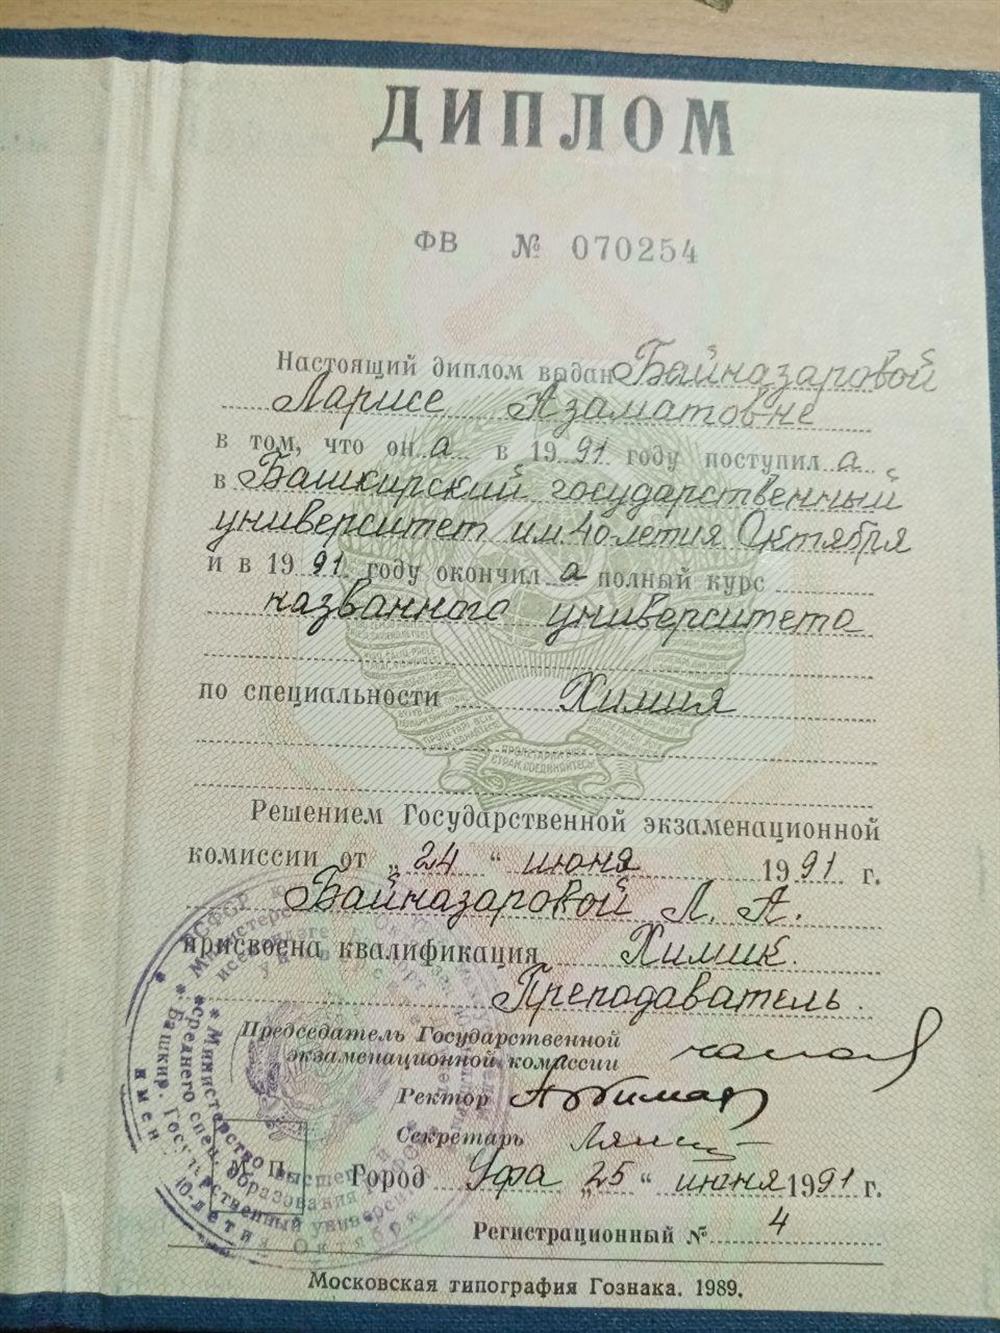 ДИПЛОМ
ФВ № 070254
Настоящий диплом выдан Байназаровой
Ларисе Азаматовне
в том, что он а в 19 91 году поступил а
в Башкирский государственный
университет им. 40-летия Октября
и в 19 91 году окончил а полный курс
названного университета
по специальности Химия
Решением Государственной экзаменационной
комиссии от „ 24 “ июня 19 91 г.
Байназаровой Л. А.
присвоена квалификация Химик.
Преподаватель.
Председатель Государственной
экзаменационной комиссии
Ректор
Секретарь
М. П. Город Уфа „ 25 “ июня 19 91 г.
Регистрационный № 4
Московская типография Гознака. 1989.
ПРОЛЕТАРИИ ВСЕХ
СТРАН, СОЕДИНЯЙТЕСЬ!